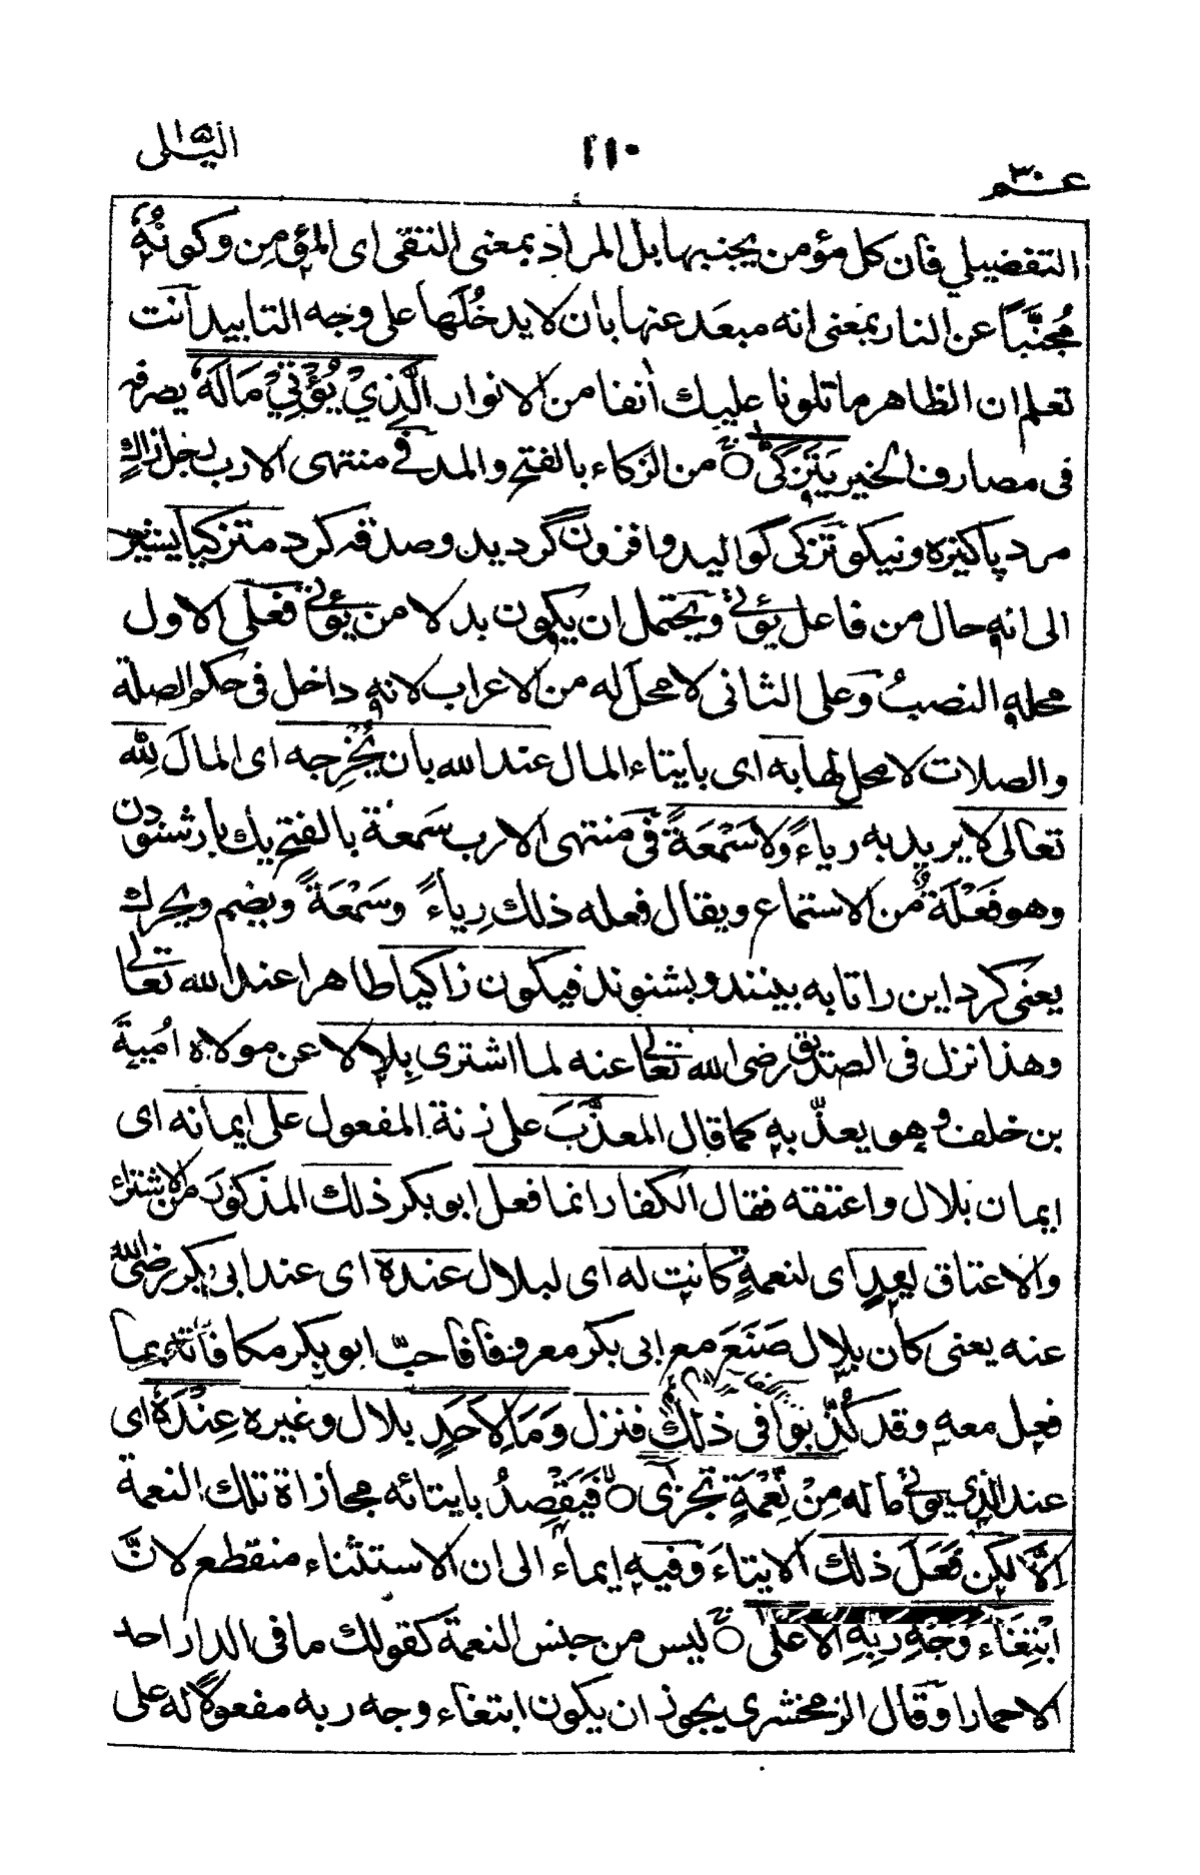 الليل
٢١٠
عم ٣٠
التفضيلي فان كل مؤمن يجنبها بل المراد بمعنى التقى اى المؤمن وكونهٗ
مُجنَّباً عن النار بمعنى انه مبعَد عنها بان لا يدخُلَها على وجه التابيد انت
تعلم ان الظاهر ما تلونا عليك أنفا من الانوار الَّذِيْ يُؤْتِيْ مَالَهٗ يصرفه
فى مصارف الخير يَتَزَكّٰى ○ من الزكاء بالفتح والمد فى منتهى الارب رجل زاكٍ
مرد پاكيزه ونيكو تَزكى گواليد وافزون گرديد وصدقه كرد متزكيا يشير
الى انه حال من فاعل يؤتى ويحتمل ان يكون بدلا من يؤتى فعلى الاول
محله النصبُ وعلى الثانى لا محل له من الاعراب لانه داخل فى حكم الصلة
والصلات لا محل لها به اى بايتاء المال عند الله بان يُخْرِجه اى المالَ لِله
تعالى لا يريد به رياءً ولا سَمْعَةً فى منتهى الارب سَمعة بالفتح يك بار شنودن
وهو فَعْلَة مّن الاستماع ويقال فعله ذلك رِياءً وسَمْعَةً ويضم ويحرك
يعنى كرد اين را تا به بينند وبشنوند فيكون زاكيا طاهرا عند الله تعالى
وهذا نزل فى الصديق رضى الله تعالى عنه لما اشترى بِلالا عن مولاه اُمية
بن خلف وهو يعذّب به كما قال المعذَّبَ على زنة المفعول على ايمانه اى
ايمان بلال واعتقه فقال الكفار انما فعل ابو بكر ذلك المذكور من الاشتراء
والاعتاق ليدٍ اى لنعمةٍ كانت له اى لبلال عنده اى عند ابى بكر رضى الله
عنه يعنى كان بلال صَنَعَ مع ابى بكر معروفا فاحبّ ابو بكر مكافأته بما
فعل معه وقد كُذّبوا فى ذلك فنزل وَمَا لِاَحَدٍ بلال وغيره عِنْدَهٗ اى
عند الذى يؤتى ماله مِنْ نِّعْمَةٍ تُجْزٰى ○ فيَقْصِدُ بايتائه مجازاة تلك النعمة
اِلَّا لكن فَعَلَ ذلك الايتاءَ وفيه ايماء الى ان الاستثناء منقطع لانَّ
ابْتِغَاءَ وَجْهِ رَبِّهِ الْاَعْلٰى ○ ليس من جنس النعمة كقولك ما فى الدار احد
الا حمارا وقال الزمخشرى يجوز ان يكون ابتغاء وجه ربه مفعولا له على